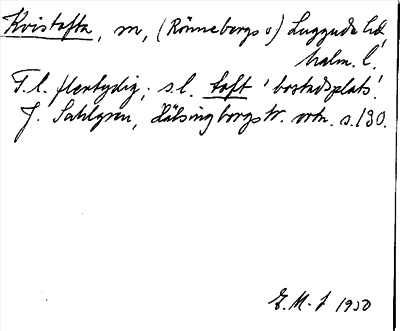 Kvistofta, m, (Rönnebergs o) Luggude hd,
malm. l.
F. l. flertydig; s. l. toft 'bostadsplats'.
J. Sahlgren, Hälsingborgstr. ortn. s. 130.
E. M-t 1950